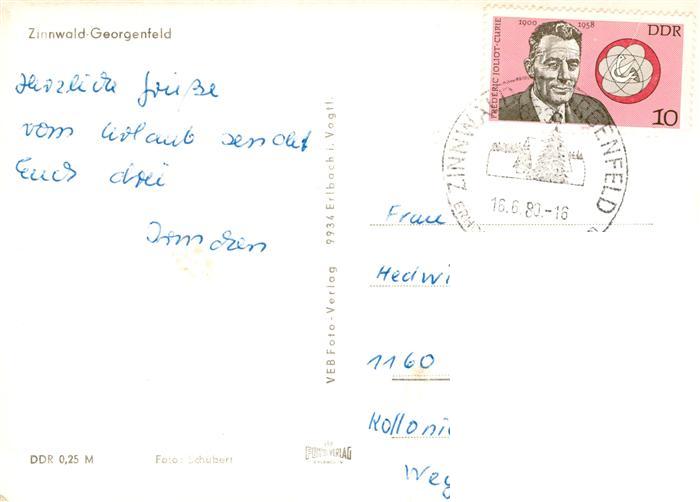 Zinnwald-Georgenfeld
Herzliche Grüße
vom Urlaub sendet
Euch drei
Irmchen
DDR 0,25 M
Foto: Schubert
VEB Foto-Verlag 9934 Erlbach i. Vogtl.
FOTO-VERLAG
1900 1958
DDR
FRÉDÉRIC JOLIOT-CURIE
10
ZINNWALD-GEORGENFELD
16.6.80.-16
Frau
Hedwi
1160
Kolloni
Weg